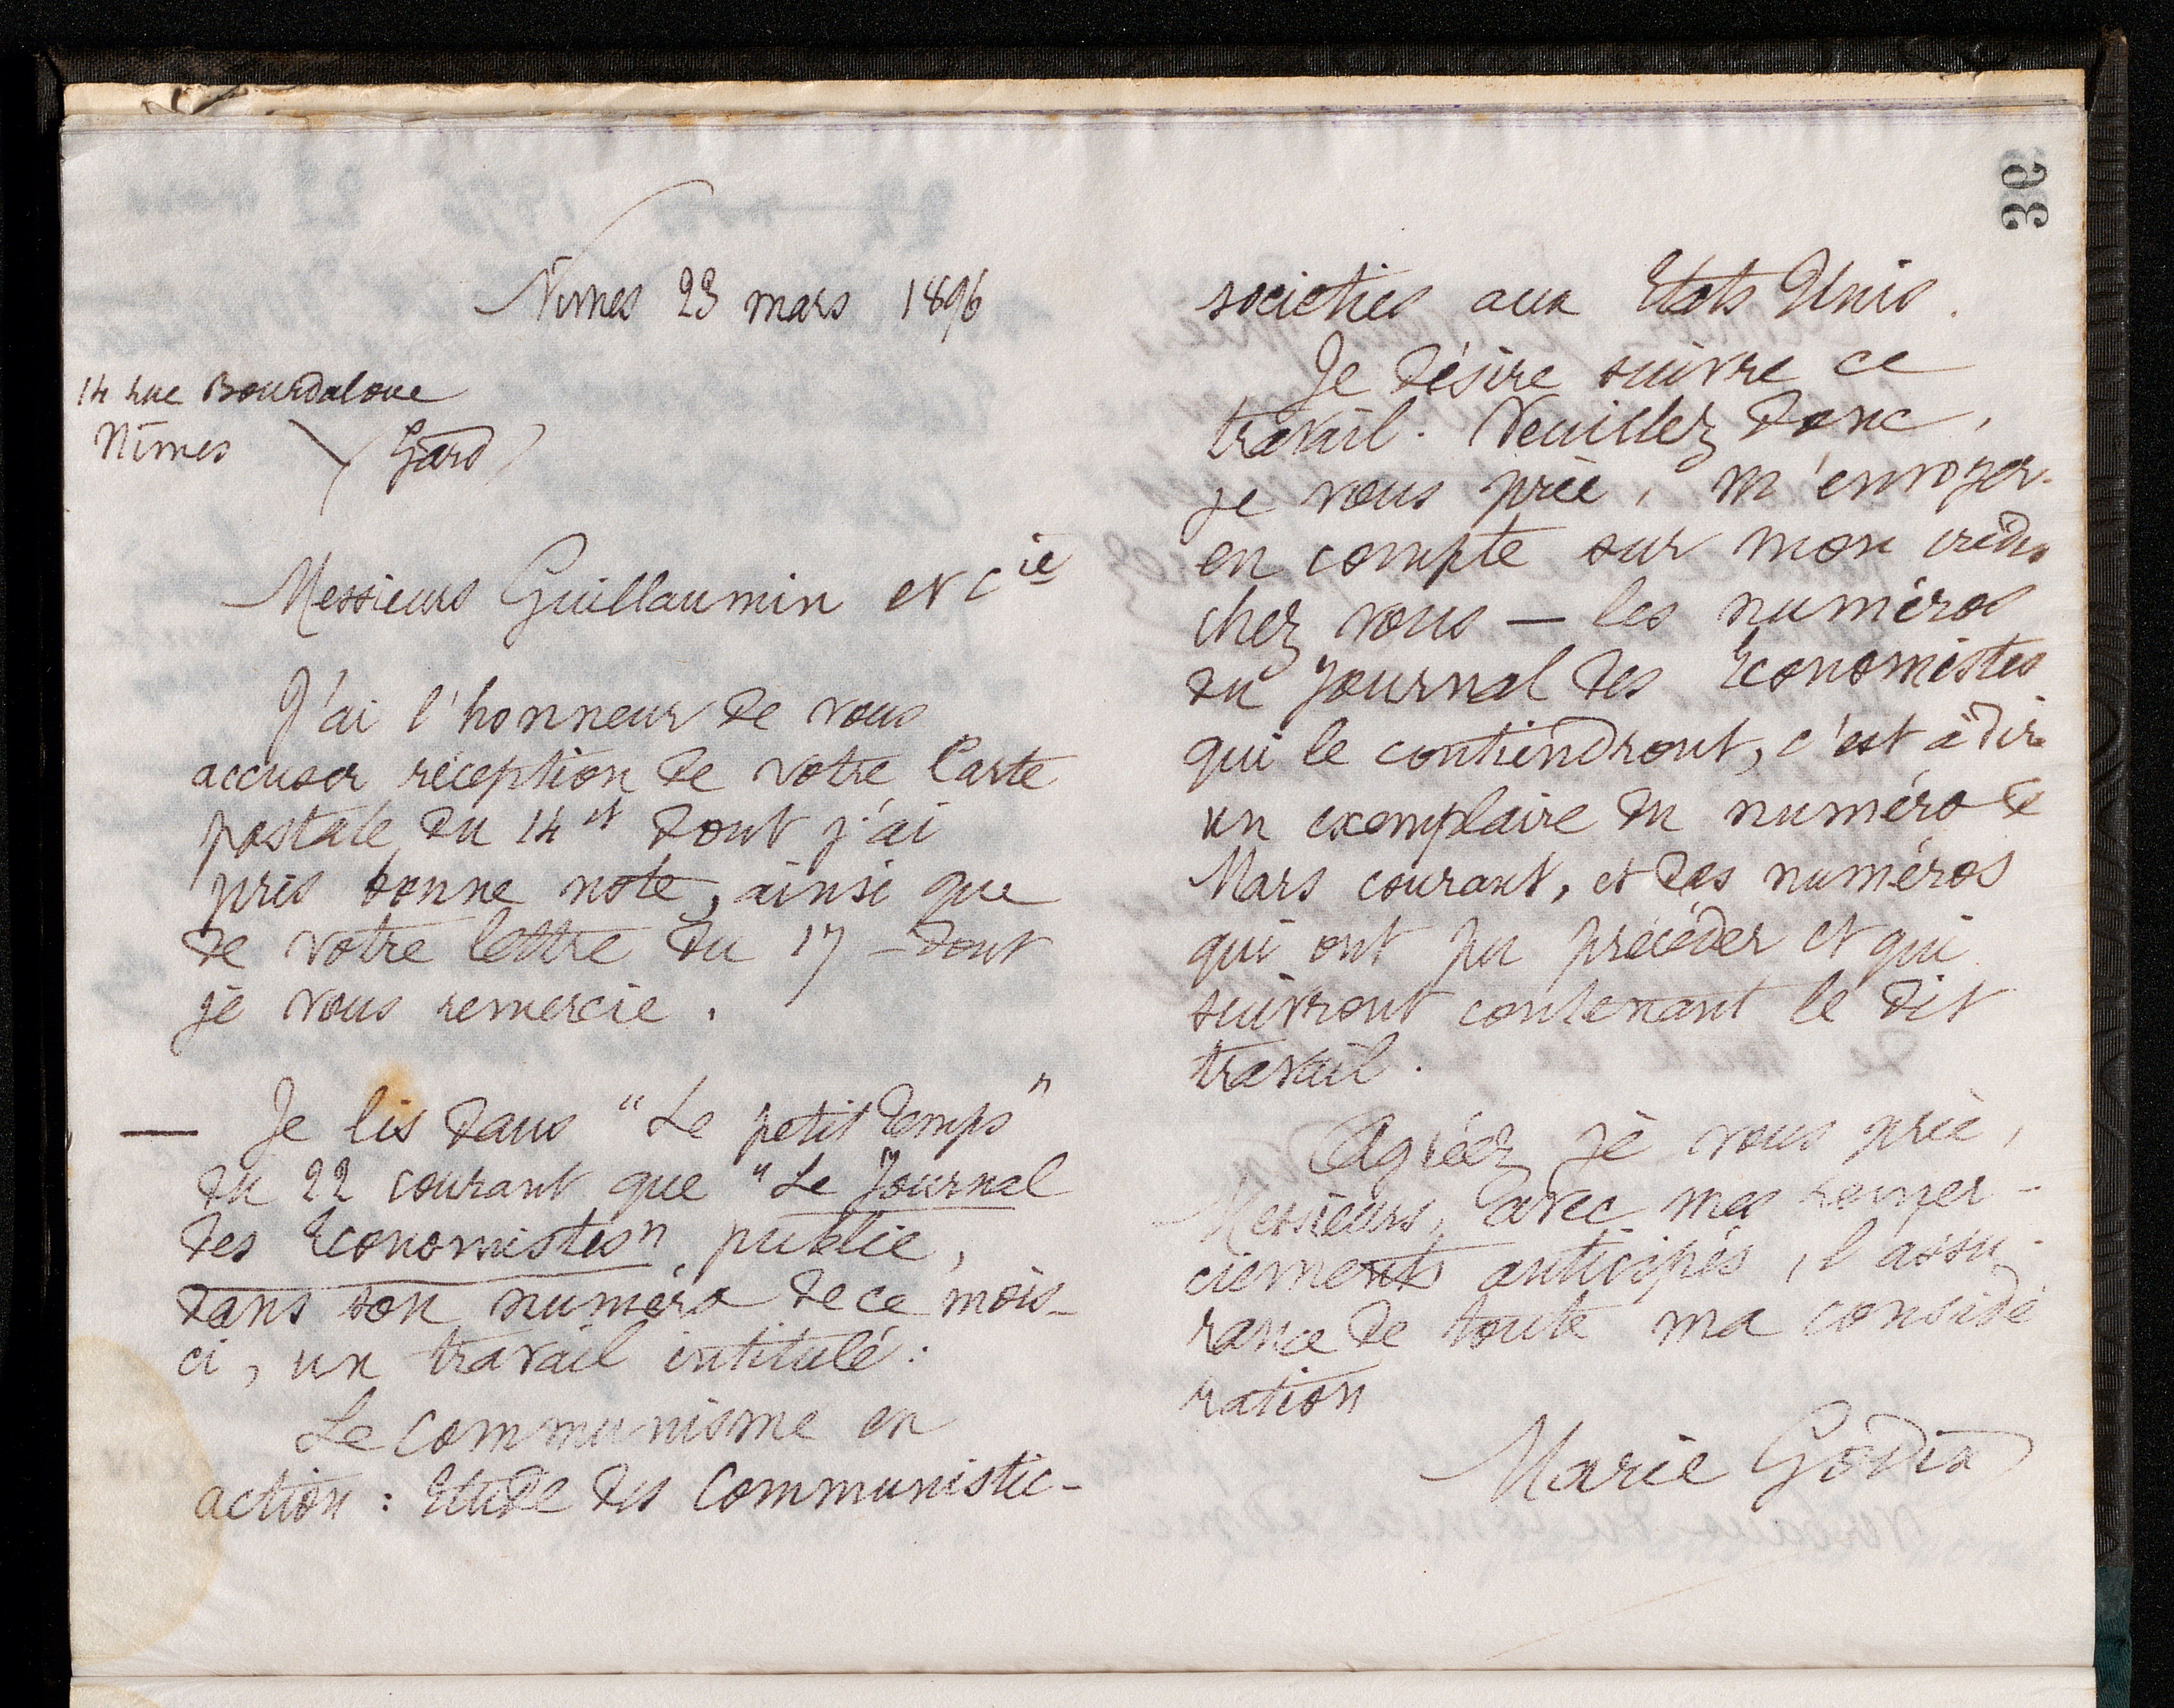 Nîmes 23 mars 1896
14 rue Bourdaloue
Nîmes (Gard)
Messieurs Guillaumin et Cie
J'ai l'honneur de vous
accuser réception de votre Carte
postale du 14 et dont j'ai
pris bonne note, ainsi que
de votre lettre du 17 – dont
je vous remercie.
— Je lis dans "Le petit Temps"
du 22 courant que "Le Journal
des Economistes" publie,
dans son numéro de ce mois-
ci, un travail intitulé :
Le communisme en
action : Etude des Communistic-
societies aux Etats Unis.
Je désire suivre ce
travail. Veuillez donc,
je vous prie, m'envoyer-
en compte sur mon crédit
chez vous — les numéros
du Journal des Economistes
qui le contiendront, c'est à dire
un exemplaire du numéro de
Mars courant, et des numéros
qui ont pu précéder et qui
suivront contenant le dit
travail.
Agréez, je vous prie,
Messieurs, avec mes remer-
ciements anticipés, l'assu-
rance de toute ma considé
ration
Marie Godin